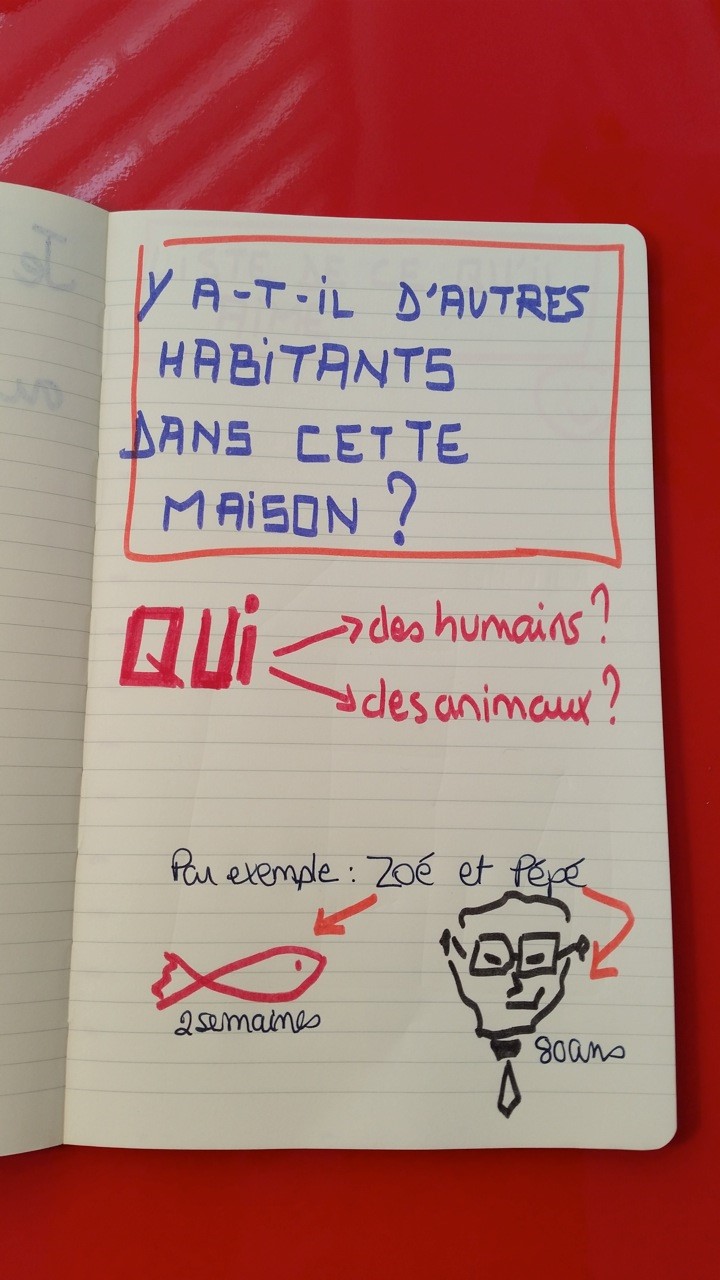 Y A-T-iL D'AUTRES
HABiTANTS
DANS CETTE
MAiSON ?
QUi
des humains ?
des animaux ?
Par exemple : Zoé et Pépé
2 semaines
80 ans
Je
ou